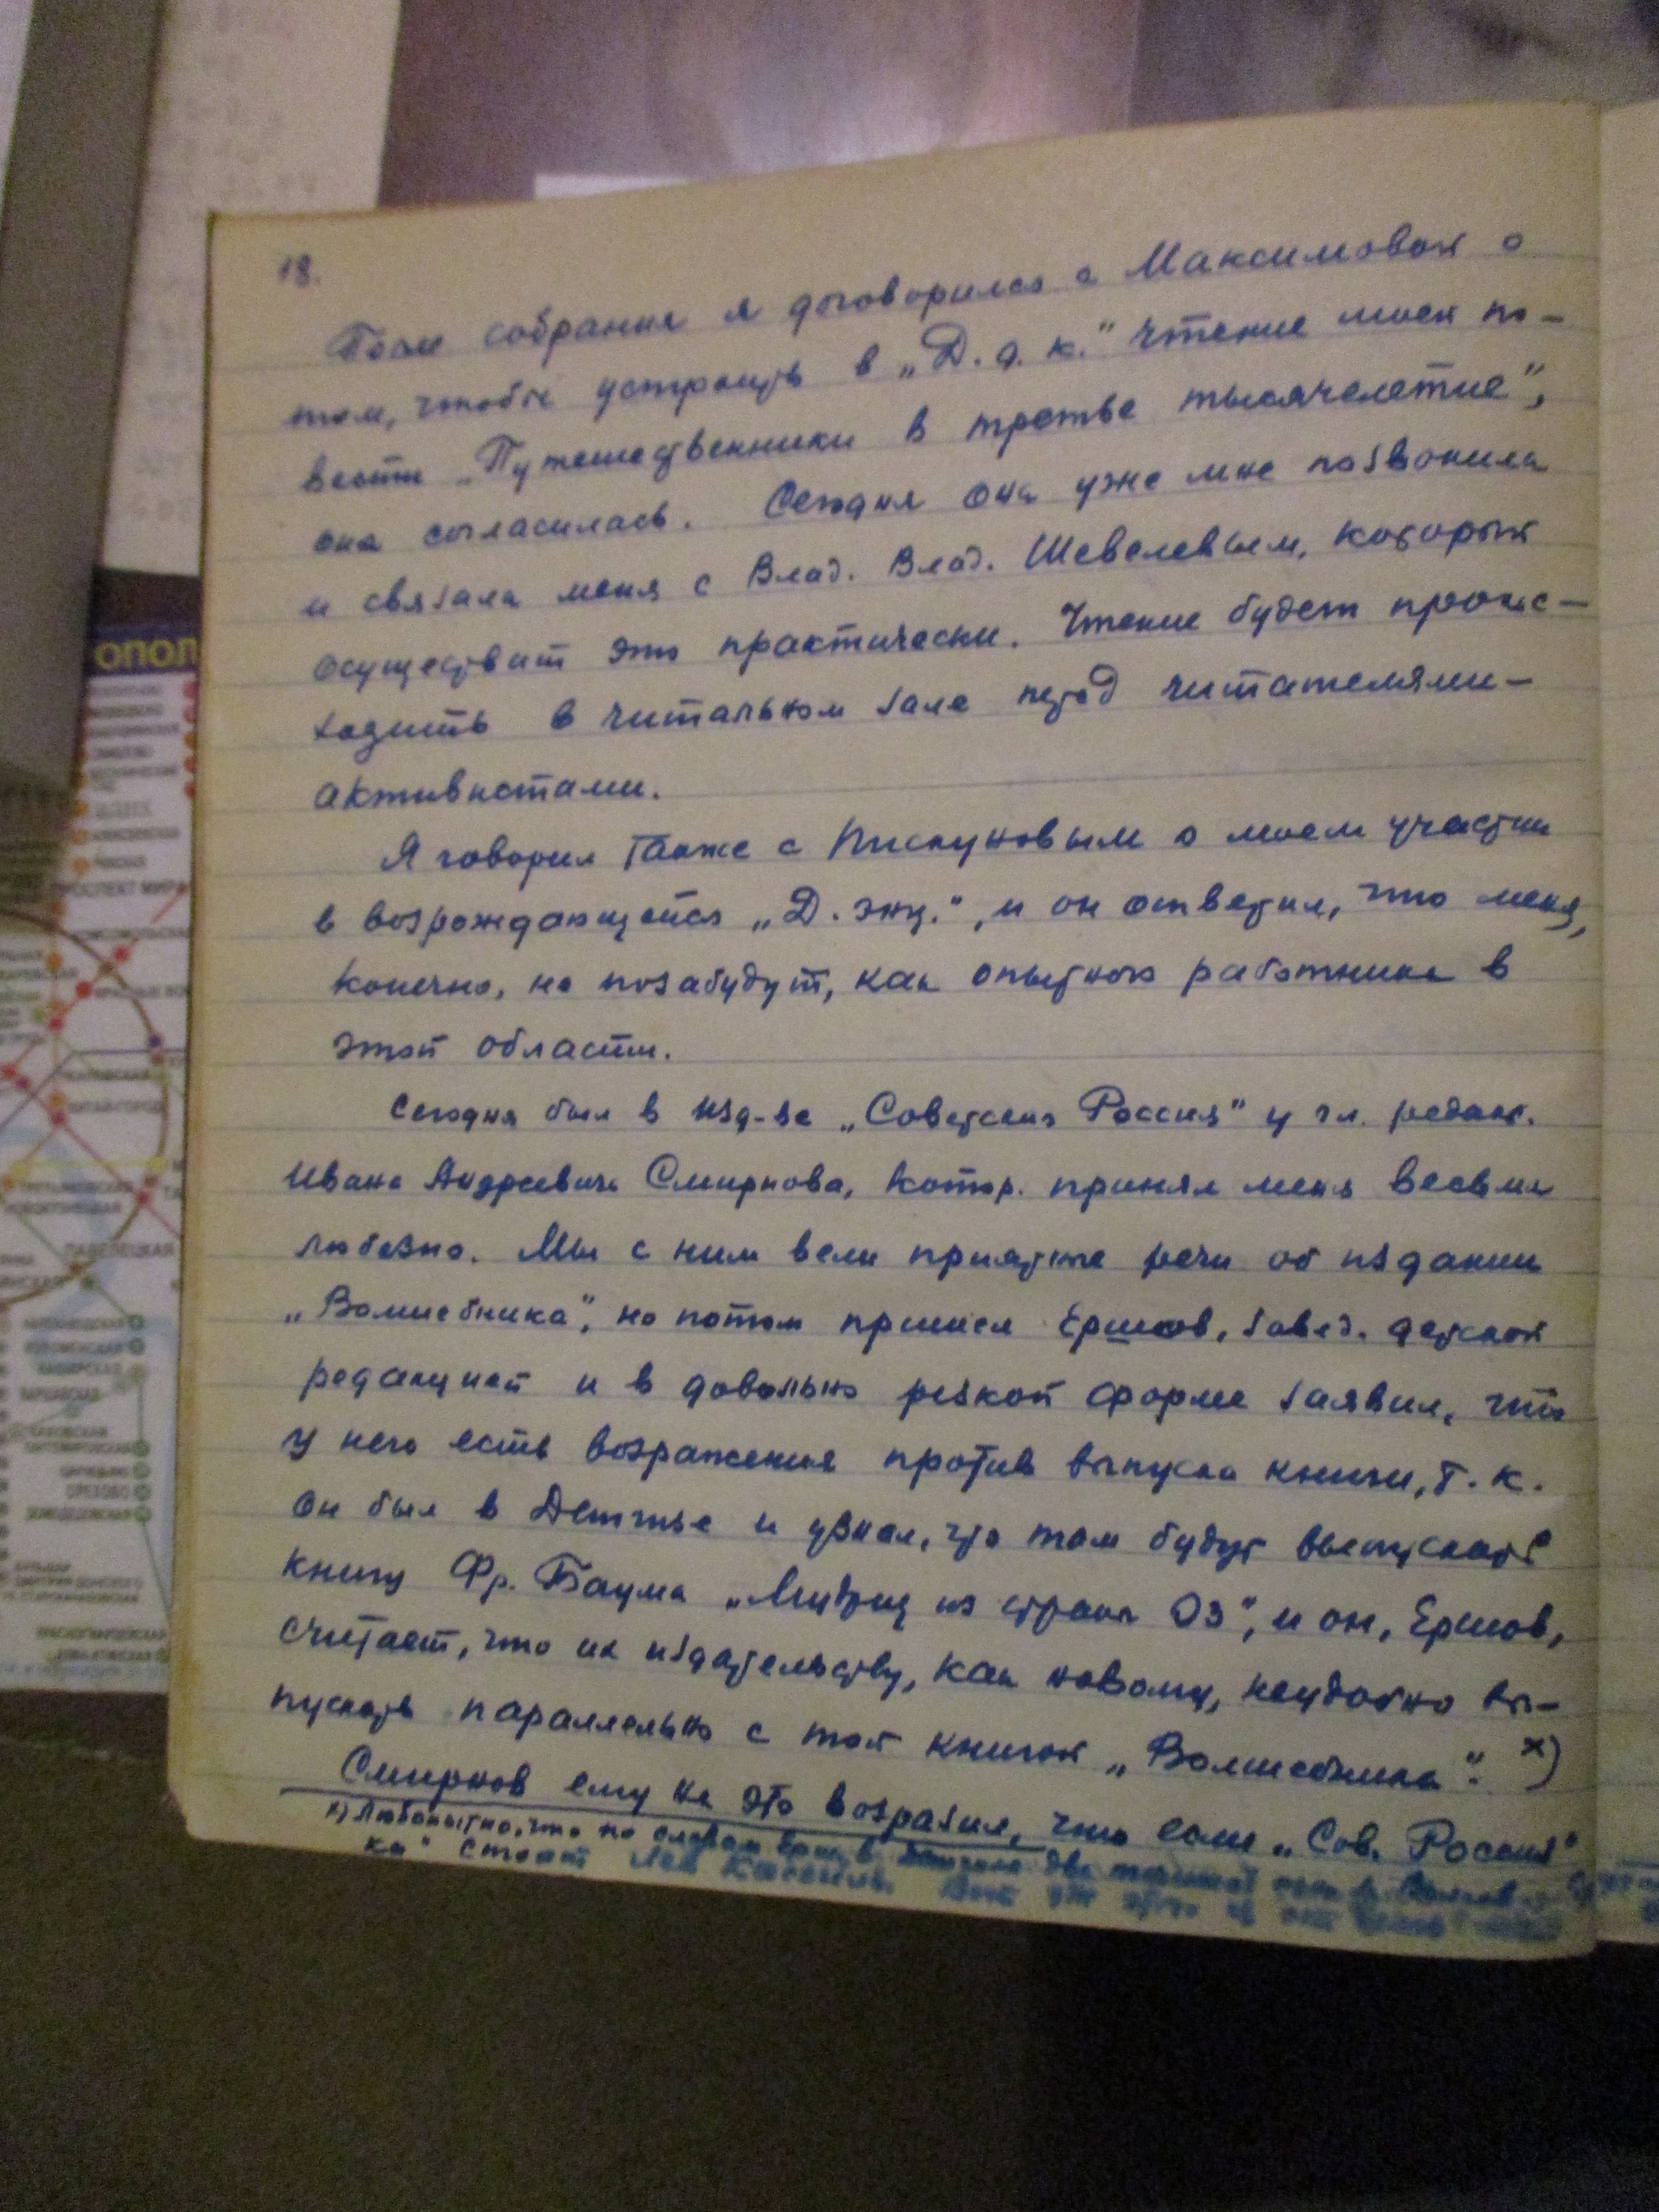 18.
После собрания я договорился с Максимовой о
том, чтобы устроить в „Д. д. к.“ чтение моей по-
вести „Путешественники в третье тысячелетие“,
она согласилась. Сегодня она уже мне позвонила
и связала меня с Влад. Влад. Шевелевым, который
осуществит это практически. Чтение будет проис-
ходить в читальном зале перед читателями-
активистами.
Я говорил также с Пискуновым о моем участии
в возрождающейся „Д. энц.“, и он ответил, что меня,
конечно, не позабудут, как опытного работника в
этой области.
Сегодня был в изд-ве „Советская Россия“ у гл. редакт.
Ивана Андреевича Смирнова, котор. принял меня весьма
любезно. Мы с ним вели приятные речи об издании
„Волшебника“, но потом пришел Ершов, завед. детской
редакцией и в довольно резкой форме заявил, что
у него есть возражения против выпуска книги, т. к.
он был в Детгизе и узнал, что там будут выпускать
книгу Фр. Баума „Мудрец из страны Оз“, и он, Ершов,
считает, что их издательству, как новому, неудобно вы-
пускать параллельно с той книгой „Волшебника“. х)
Смирнов ему на это возразил, что если „Сов. Россия“
х) Любопытно, что по словам Ерш., в Детгизе две
ка“ стоит Лев Кассиль. Вот уж
ОПОЛ
ПРОСПЕКТ МИРА
КИТАЙ-ГОРОД
ПАВЕЛЕЦКАЯ
КАШИРСКАЯ
ВАРШАВСКАЯ
ОРЕХОВО
ДОМОДЕДОВСКАЯ